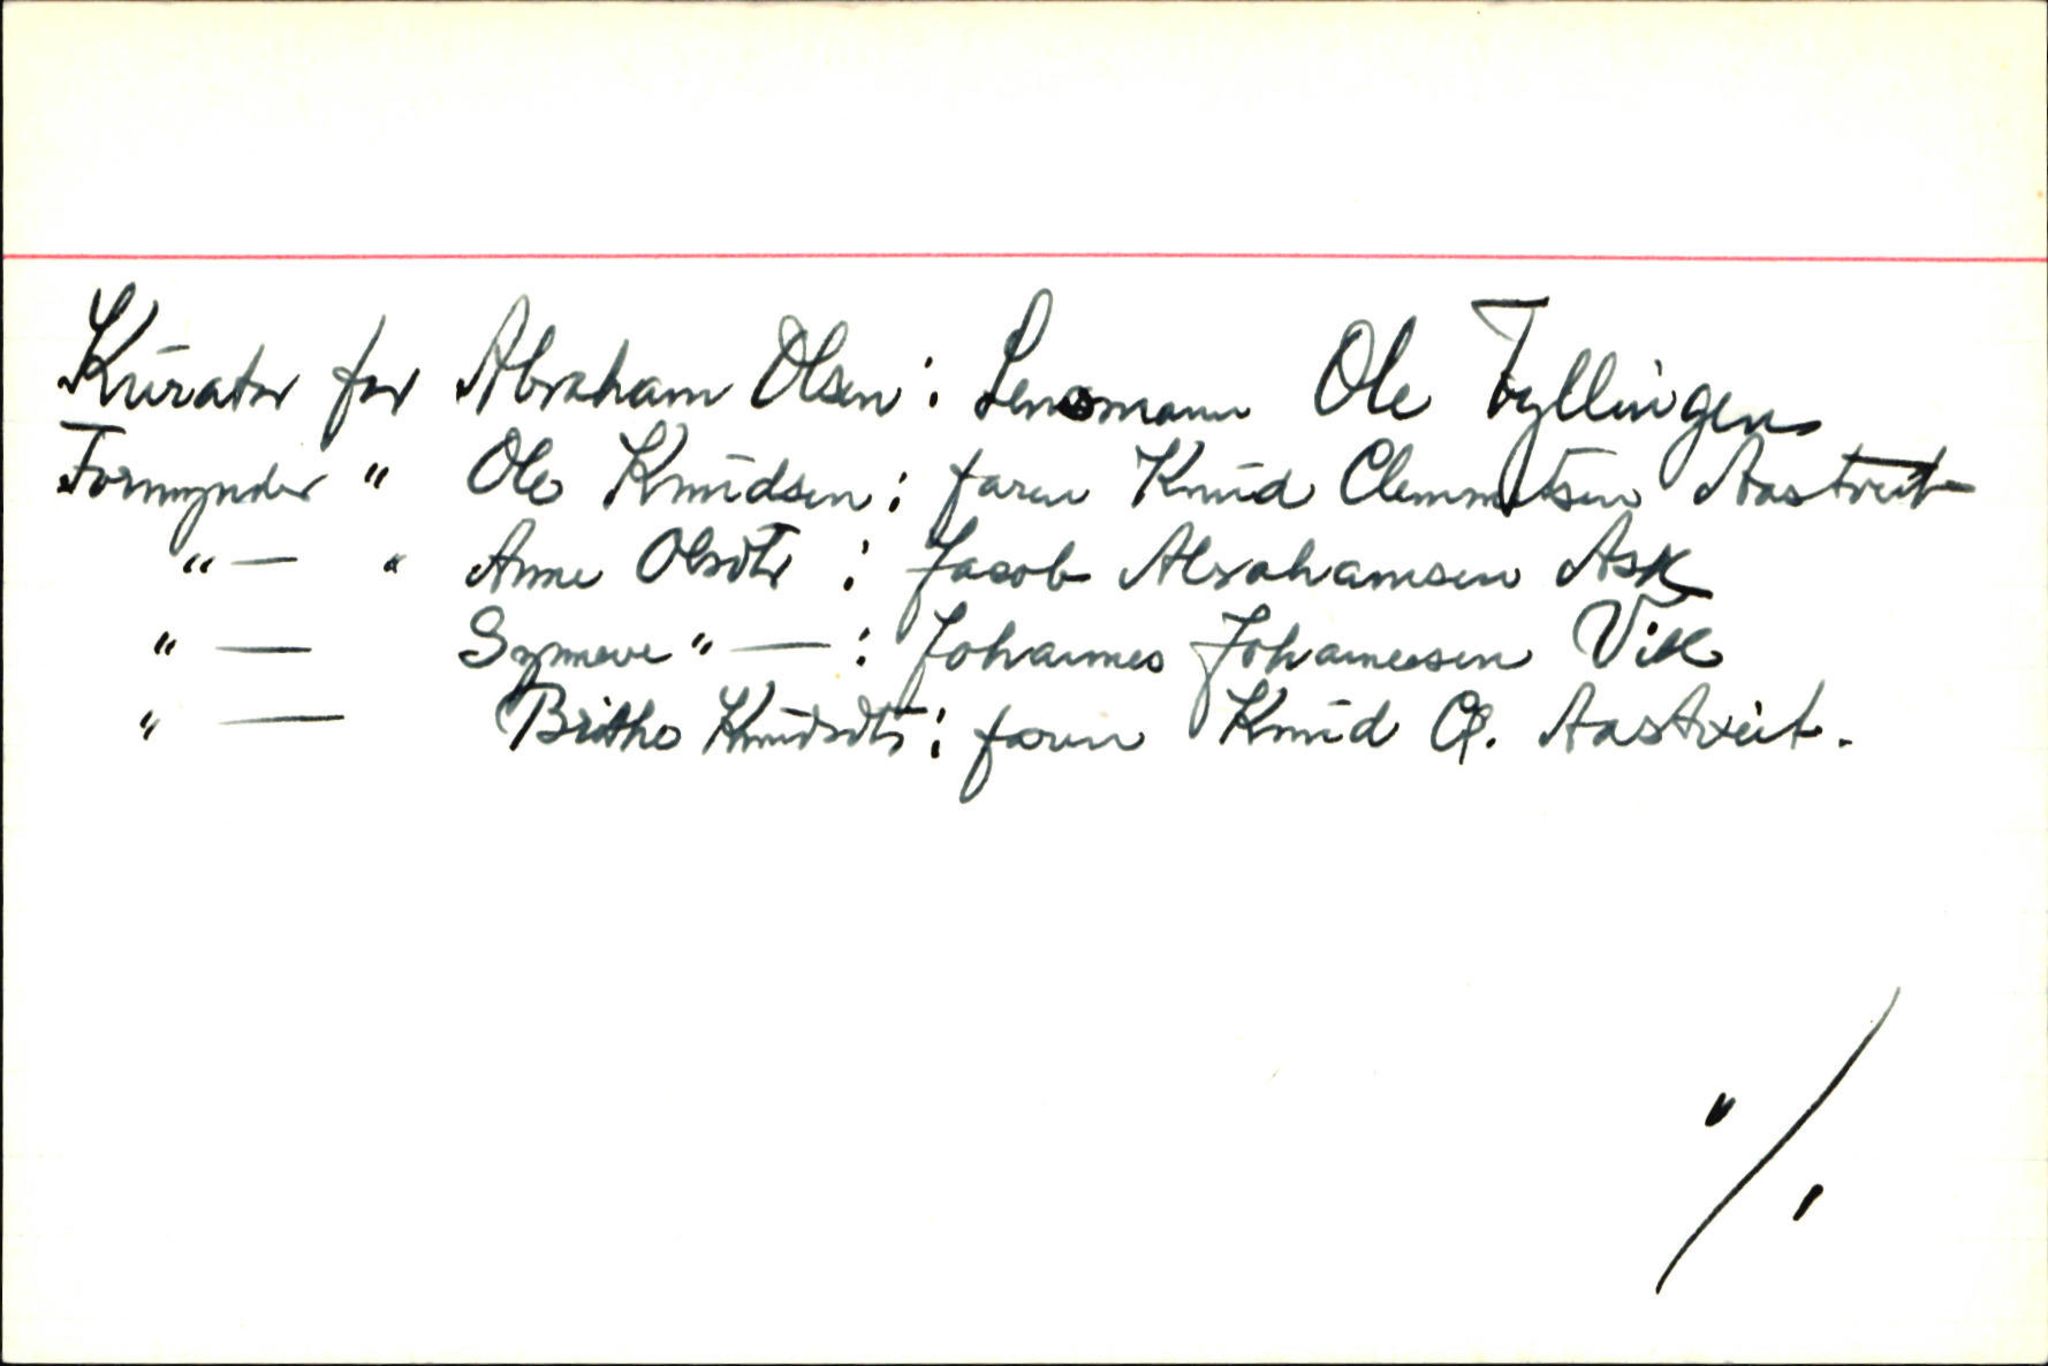 Kurator for Abraham Olsen: Lensmann Ole Tyllingen
Formynder " Ole Knudsen: faren Knud Clemmetsen Aastveit
" — " Anne Olsdtr: Jacob Abrahamsen Ask
" — Synneve " — : Johannes Johannessen Vik
" — Britha Knudsdtr: faren Knud Cl. Aastveit.